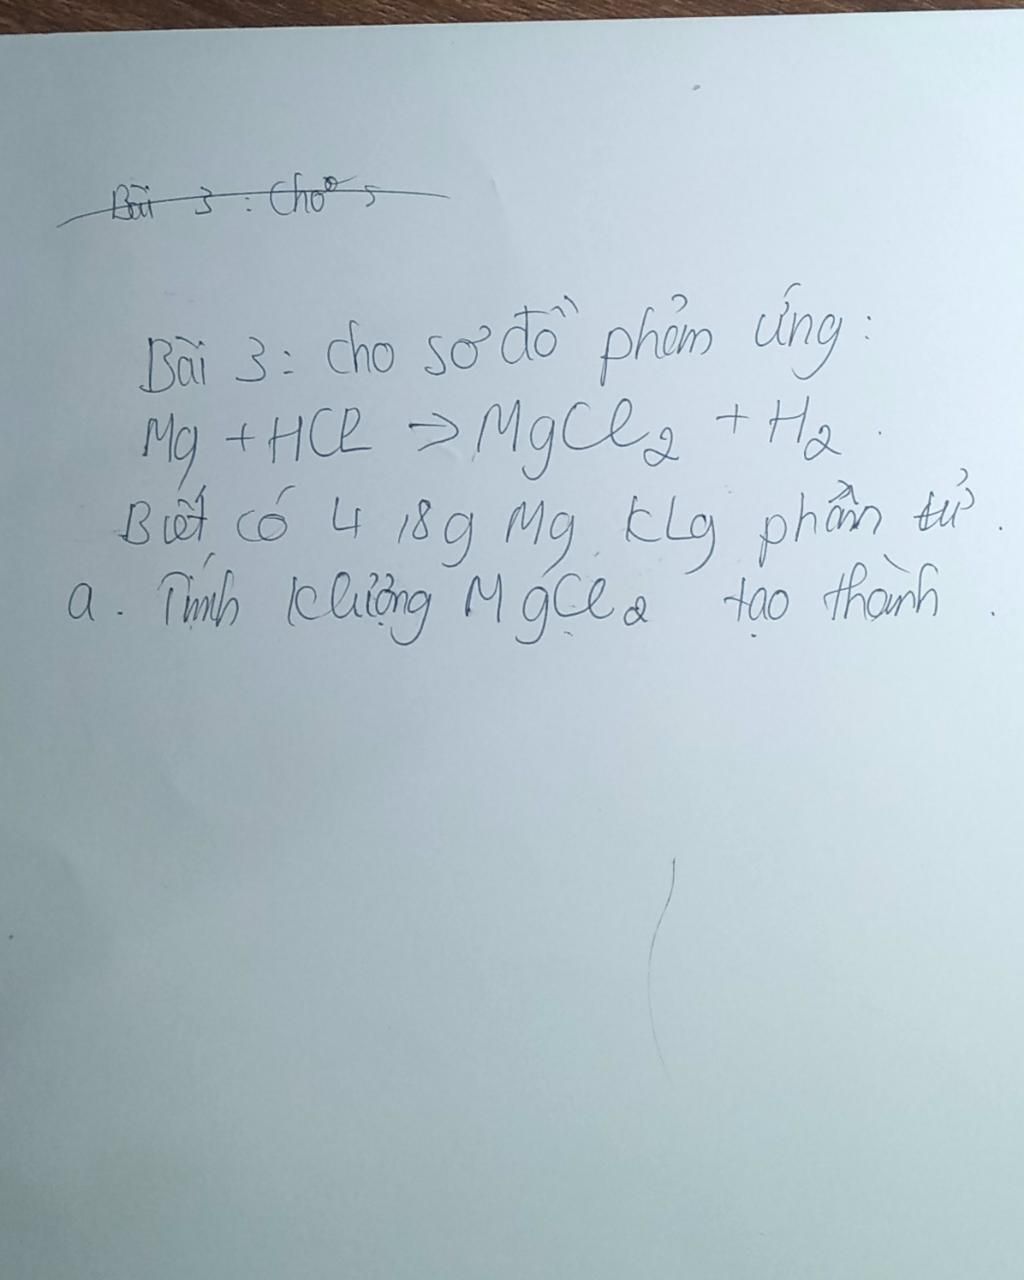 Bài 3 : Cho s
Bài 3 : cho sơ đồ phản ứng :
Mg + HCl → MgCl₂ + H₂ .
Biết có 4,8g Mg. KLg phân tử .
a . Tính klượng MgCl₂ tạo thành .